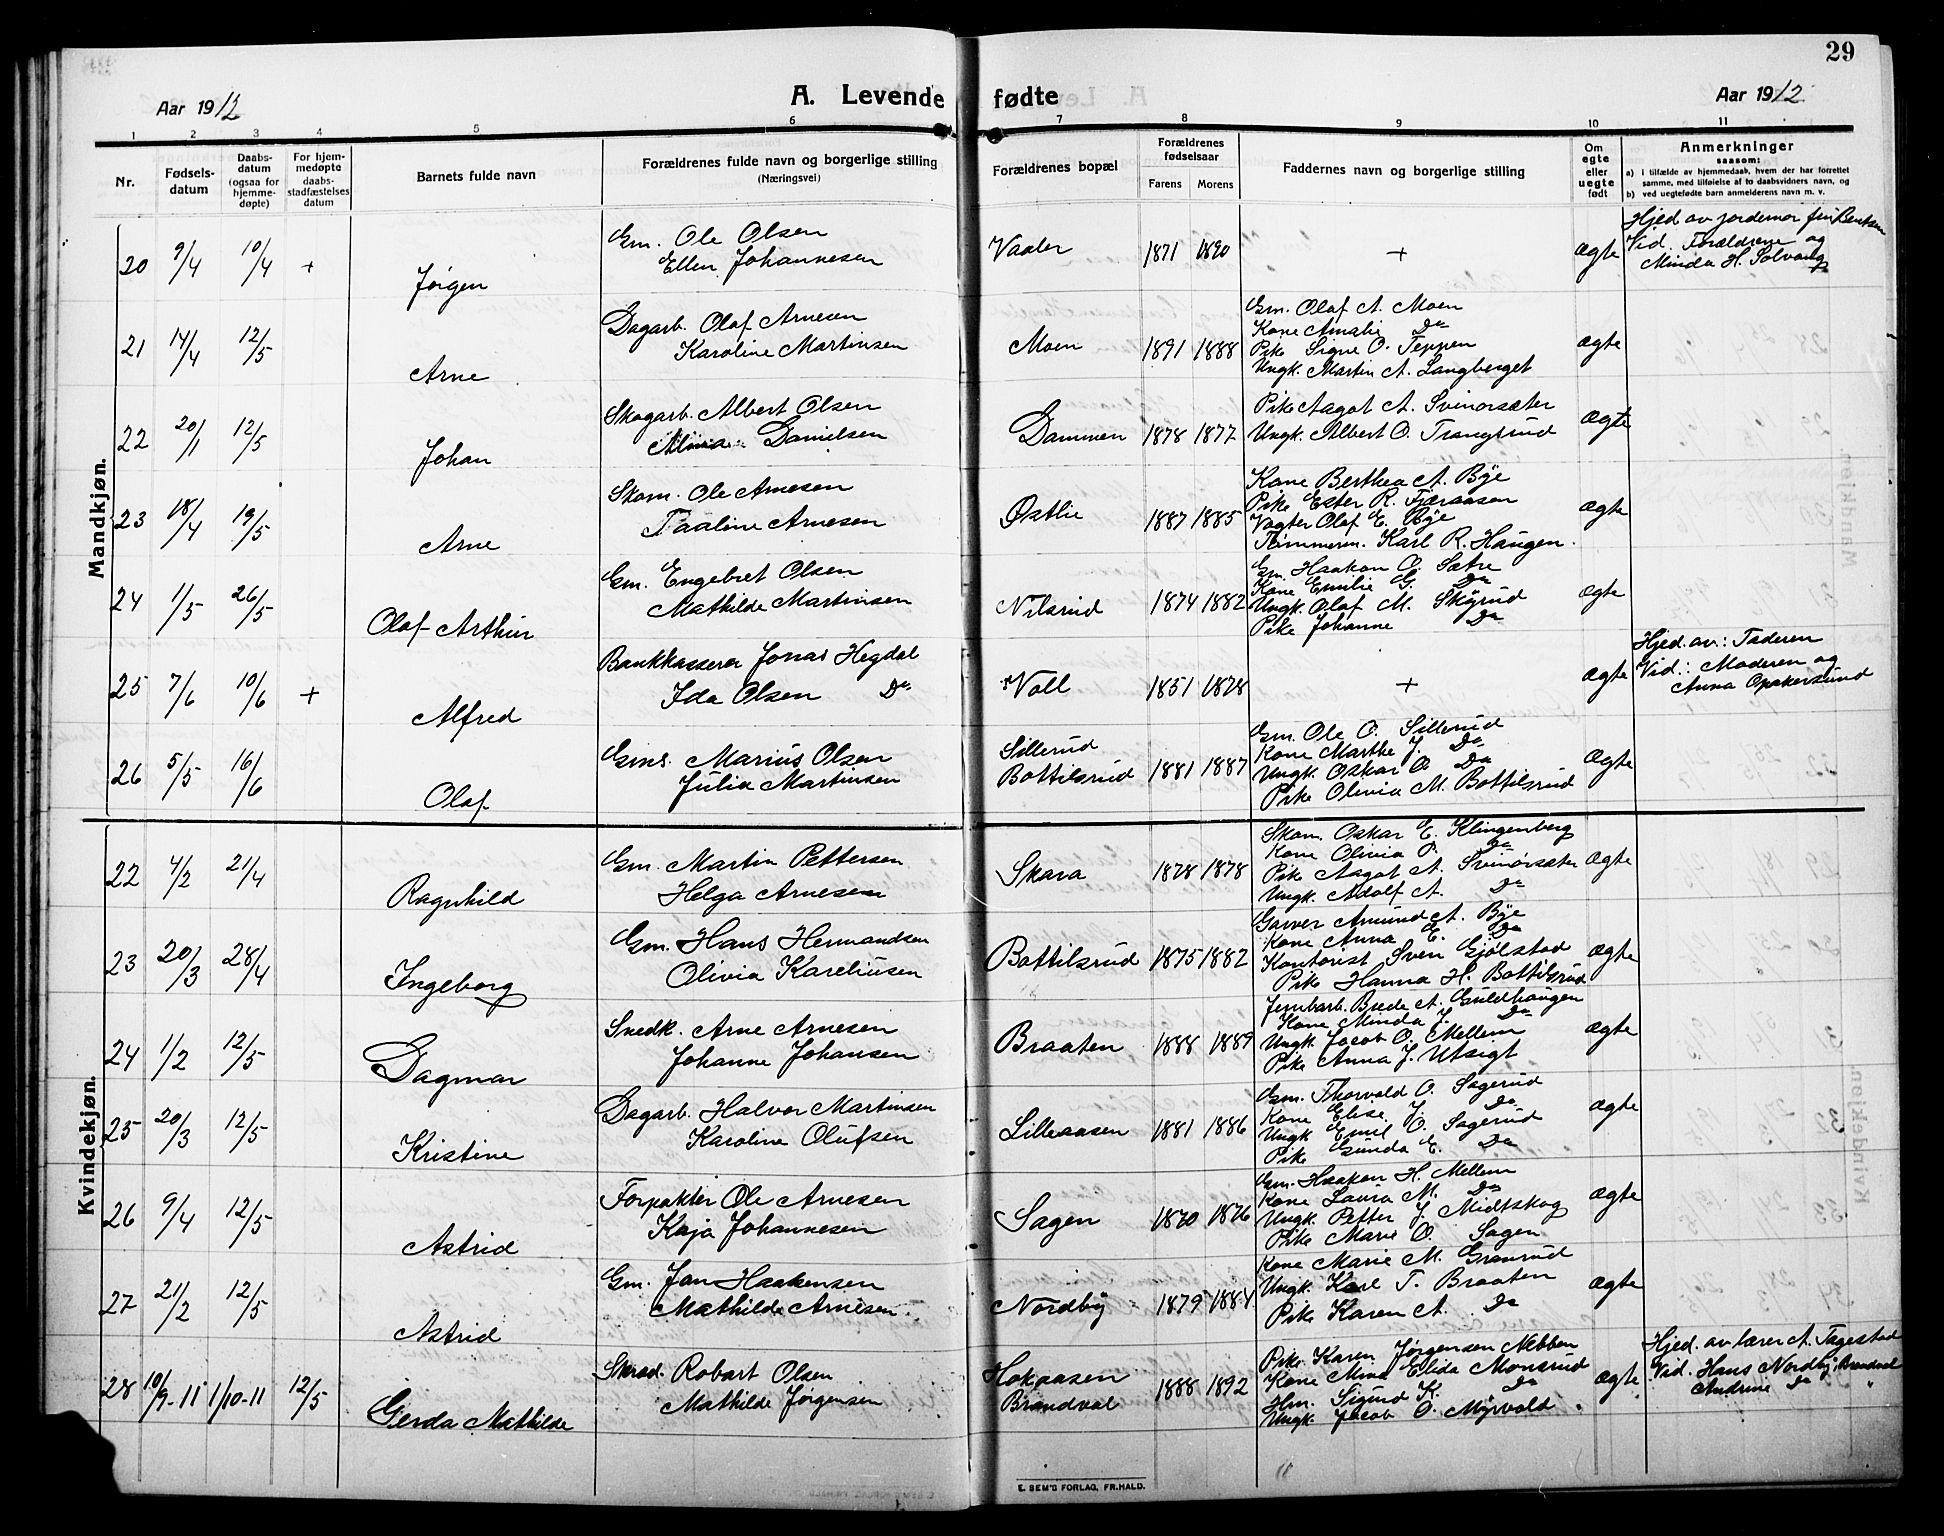 29
Aar 1912
A. Levende fødte
Aar 1912
1 2 3 4 5 6 7 8 9 10 11
Nr.
Fødsels-
datum
Daabs-
datum
(ogsaa for
hjemme-
døpte)
For hjem-
medøpte
daabs-
stadfæstelses
datum
Barnets fulde navn
Forældrenes fulde navn og borgerlige stilling
(Næringsvei)
Forældrenes bopæl
Forældrenes
fødselsaar
Farens Morens
Faddernes navn og borgerlige stilling
Om
egte
eller
uegte
født
Anmerkninger
saasom:
a) i tilfælde av hjemmedaab, hvem der har forrettet
samme, med tilføielse af to daabsvidners navn, og
b) ved uegtefødte barn anmelderens navn m. v.
Mandkjøn.
20 9/4 10/4 + Jørgen
Gm. Ole Olsen
Ellen Johannesen
Vaaler 1871 1890 + ægte
Hjed. av jordemor Bentsen
Vid. Forældrene og
Minda H. Solvang
21 14/4 12/5 Arne
Dagarb. Olaf Arnesen
Karoline Martinsen
Moen 1891 1888
Gm. Olaf A. Moen
Kone Amalie Do
Pike Signe O. Teppen
Ungk. Martin A. Langberget
ægte
22 20/1 12/5 Johan
Skogarb. Albert Olsen
Danielsen
Dammen 1878 1877
Pike Aagot A. Svinorsæter
Ungk. Albert O. Trangsrud
ægte
23 18/4 19/5 Arne
Skom. Ole Arnesen
Paaline Arnesen
Østlie 1887 1885
Kone Berthea A. Bye
Pike Ester R. Fjeraasen
Vogter Olaf E. Bye
Tømmerm. Karl R. Haugen.
ægte
24 1/5 26/5 Olaf Arthur
Gm. Engebret Olsen
Mathilde Martinsen
Nilsrud 1874 1882
Gm. Haakon O. Sætre
Kone Emilie G. Do
Ungk. Olaf M. Skyrud
Pike Johanne Do
ægte
25 7/6 10/6 + Alfred
Bankkasserer Jonas Hegdal
Ida Olsen Do
Voll 1851 1878 + ægte
Hjed. av: Faderen
Vid.: Moderen og
Anna Opakersund
26 5/5 16/6 Olaf
Gms. Marius Olsen
Julia Martinsen
Sillerud
Bottilsrud 1881 1887
Gm. Ole O. Sillerud
Kone Marthe J. Do
Ungk. Oskar O. Do
Pike Olivia M. Bottilsrud
ægte
Kvindekjøn.
22 4/2 21/4 Ragnhild
Gm. Martin Pettersen
Helga Arnesen
Skara 1878 1878
Skom. Oskar E. Klingenberg
Kone Olivia P. Do
Pike Aagot A. Svinorsæter
Ungk. Adolf A. Do
ægte
23 20/3 28/4 Ingeborg
Gm. Hans Hermandsen
Olivia Kareliusen
Bottilsrud 1875 1882
Garver Amund A. Bye
Kone Anna E. Do
Kontorist Sven Gjølstad
Pike Hanna H. Bottilsrud
ægte
24 1/2 12/5 Dagmar
Snedk. Arne Arnesen
Johanne Johansen
Braaten 1888 1889
Jernbarb. Brede A. Guldhaugen
Kone Minda J. Do
Ungk. Jacob O. Mellem
Pike Anna J. Utsigt
ægte
25 20/3 12/5 Kristine
Dagarb. Halvor Martinsen
Karoline Olufsen
Lilleaasen 1881 1886
Gm. Thorvald O. Sagerud
Kone Elise J. Do
Ungk. Emil O. Sagerud
Pike Gunda E. Do
ægte
26 9/4 12/5 Astrid
Forpakter Ole Arnesen
Kaja Johannesen
Sagen 1870 1876
Gm. Haakon H. Mellem
Kone Laura M. Do
Ungk. Petter J. Midtskog
Pike Marie O. Sagen
ægte
27 21/2 12/5 Astrid
Gm. Jan Haakensen
Mathilde Arnesen.
Nordby 1879 1884
Kone Marie M. Granrud
Ungk. Karl T. Braaten
Pike Karen A. Do
ægte
28 10/9-11 1/10-11 12/5 Gerda Mathilde
Skrad. Robart Olsen
Mathilde Jørgensen
Hokaasen
Brandval 1888 1892
Pike Karen Jørgensen Nebben
Kone Mina Elida Monsrud
Hm. Sigurd K. Do
Ungk. Jacob O. Myrvold.
ægte
Hjed. av lærer A. Tagestad
Vid. Hans Nordby, Brandval
Andrine Do "
E. SEM'S FORLAG, FR.HALD.